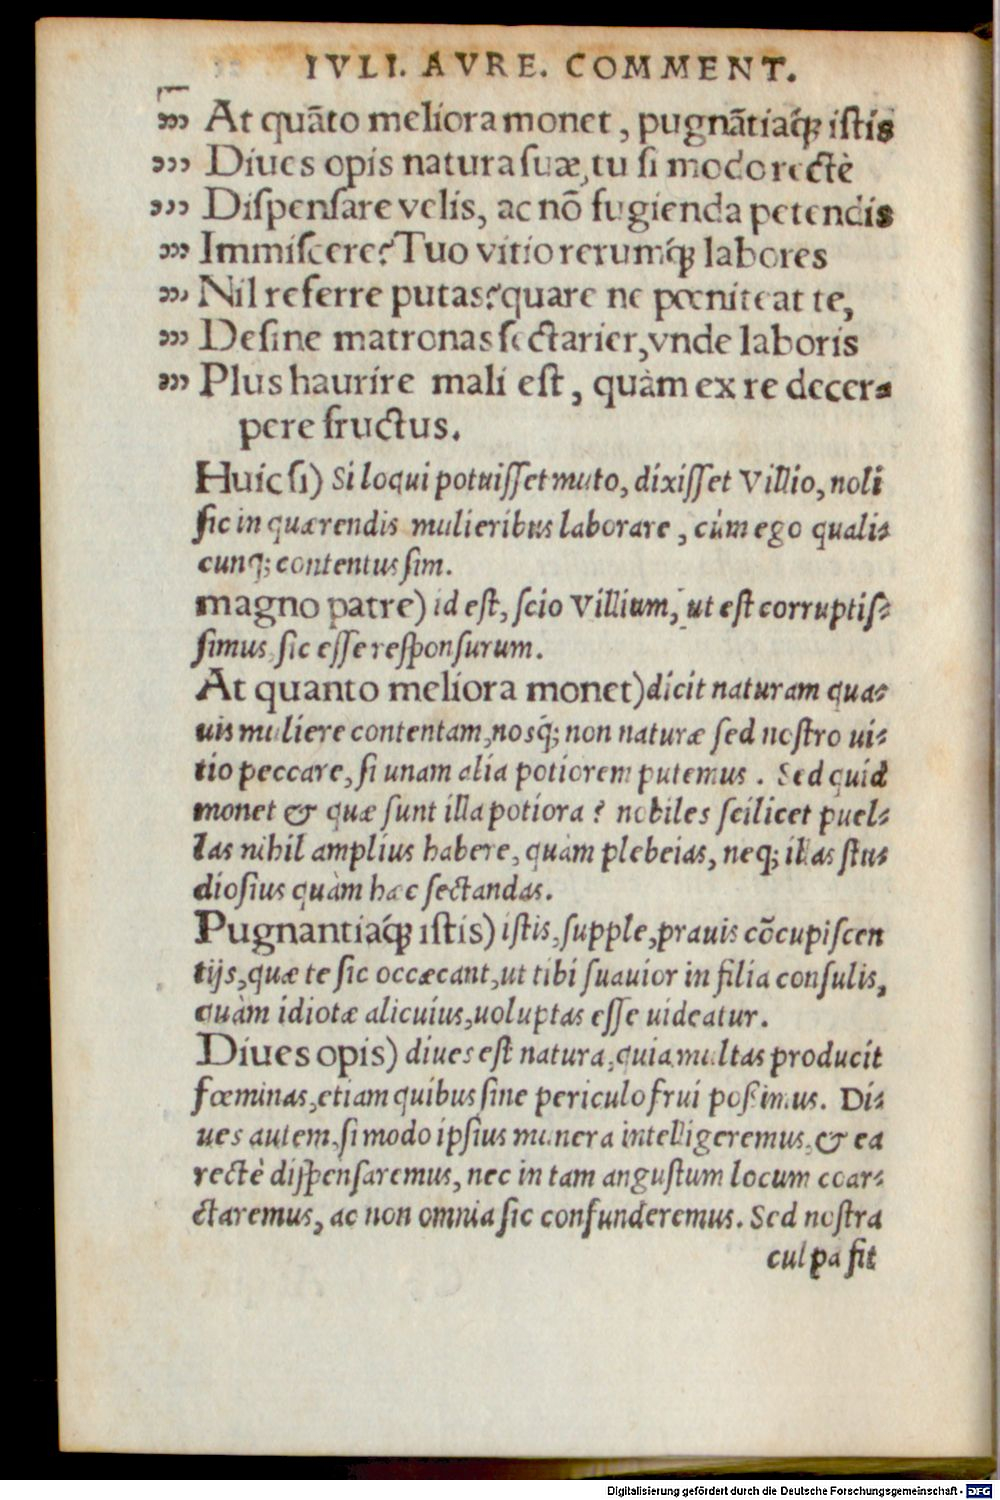 IVLI. AVRE. COMMENT.
››› At quãto meliora monet, pugnãtiaq́; istis
››› Diues opis natura suæ, tu si modo rectè
››› Dispensare velis, ac nõ fugienda petendis
››› Immiscere? Tuo vitio rerumq́; labores
››› Nil referre putas? quare ne pœniteat te,
››› Desine matronas sectarier, vnde laboris
››› Plus haurire mali est, quàm ex re decer-
pere fructus.
Huic si) Si loqui potuisset muto, dixisset Villio, noli
sic in quærendis mulieribus laborare, cùm ego qualis-
cunq; contentus sim.
magno patre) id est, scio Villium, ut est corruptis-
simus, sic esse responsurum.
At quanto meliora monet) dicit naturam qua-
uis muliere contentam, nosq́; non naturæ sed nostro ui-
tio peccare, si unam alia potiorem putemus. Sed quid
monet & quæ sunt illa potiora? nobiles scilicet puel-
las nihil amplius habere, quàm plebeias, neq; illas stu-
diosius quàm hæc sectandas.
Pugnantiaq́; istis) istis, supple, prauis cõcupiscen
tijs, quæ te sic occæcant, ut tibi suauior in filia consulis,
quàm idiotæ alicuius, uoluptas esse uideatur.
Diues opis) diues est natura, quia multas producit
fœminas, etiam quibus sine periculo frui possimus. Di-
ues autem, si modo ipsius munera intelligeremus, & ea
rectè dispensaremus, nec in tam angustum locum coar-
ctaremus, ac non omnia sic confunderemus. Sed nostra
culpa fit
Digitalisierung gefördert durch die Deutsche Forschungsgemeinschaft - DFG